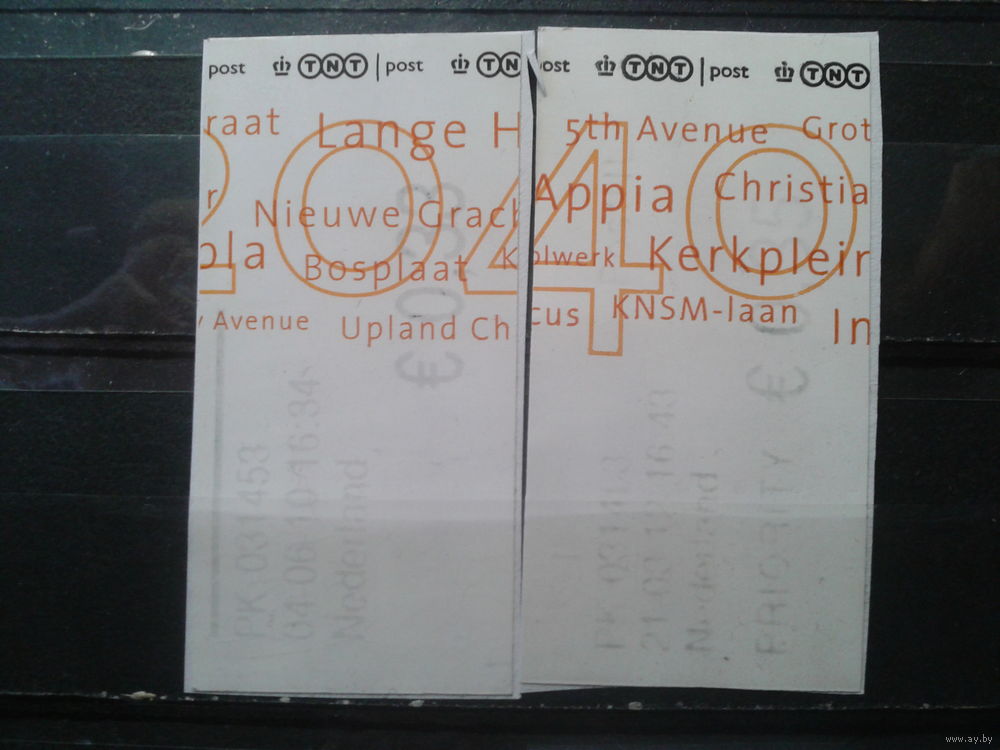 post TNT | post TNT
raat Lange H
r
Nieuwe Grach
ola
Bosplaat K
y Avenue Upland Ch
2 0 4
€ 0,
PK 031453
04 06 10 16:34
Nederland
ost TNT | post TNT
5th Avenue Grot
Appia Christia
olwerk Kerkplein
cus KNSM-laan In
4 0
€
PK
Nederland
PRIORITY
www.ay.by